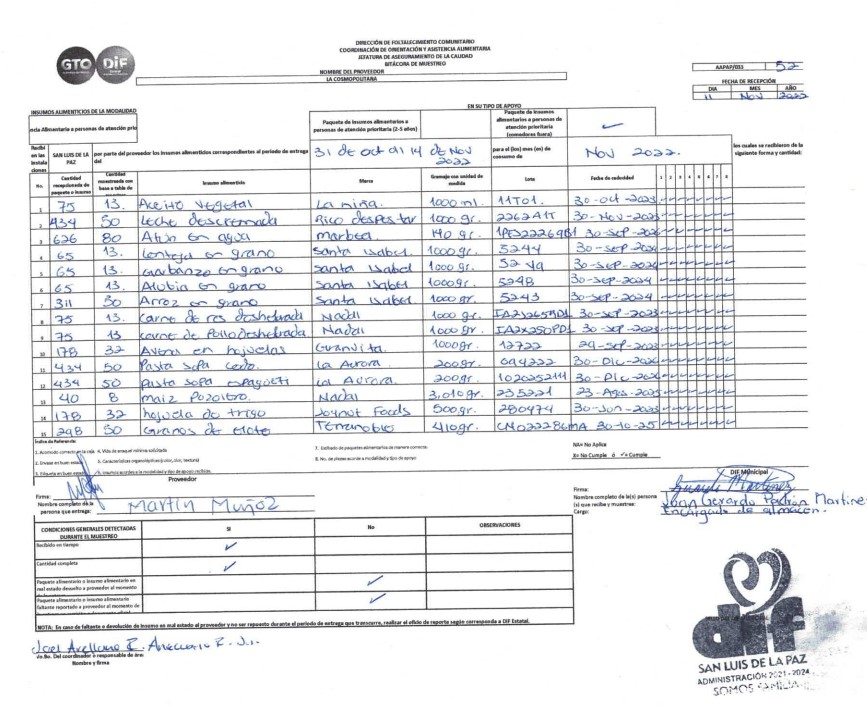 DIRECCIÓN DE FORTALECIMIENTO COMUNITARIO
COORDINACIÓN DE ORIENTACIÓN Y ASISTENCIA ALIMENTARIA
JEFATURA DE ASEGURAMIENTO DE LA CALIDAD
BITÁCORA DE MUESTREO
GTO DiF
NOMBRE DEL PROVEEDOR
LA COSMOPOLITANA
AAPAP/033 52
FECHA DE RECEPCIÓN
DIA MES AÑO
11 Nov 2022
INSUMOS ALIMENTICIOS DE LA MODALIDAD
EN SU TIPO DE APOYO
ncia Alimentaria a personas de atención prio
Paquete de insumos alimentarios a personas de atención prioritaria (2-5 años)
Paquete de insumos alimentarios a personas de atención prioritaria (comedores fuera) ✓
Recibí en las instalaciones SAN LUIS DE LA PAZ por parte del proveedor los insumos alimenticios correspondientes al periodo de entrega del 31 de oct al 14 de Nov 2022 para el (los) mes (es) de consumo de Nov 2022. los cuales se recibieron de la siguiente forma y cantidad:
No. Cantidad recepcionada de paquete o insumo Cantidad muestreada con base a tabla de Insumo alimenticio Marca Gramaje con unidad de medida Lote Fecha de caducidad 1 2 3 4 5 6 7 8
1 75 13. Aceite Vegetal La niña. 1000 ml. 11T01. 30-oct-2023 ✓✓✓✓✓✓✓✓
2 434 50 Leche descremada Rico despertar 1000 gr. 2262A1T 30-Nov-2023 ✓✓✓✓✓✓✓✓
3 626 80 Atún en agua marbea. 140 gr. 30-sep-2026 ✓✓✓✓✓✓✓✓
4 65 13. Lenteja en grano Santa Isabel. 1000gr. 5244 30-sep-2024 ✓✓✓✓✓✓✓✓
5 65 13. Garbanzo en grano Santa Isabel 1000 gr. 30-sep-2024 ✓✓✓✓✓✓✓✓
6 65 13. Alubia en grano Santa Isabel 1000 gr. 5248 30-sep-2024 ✓✓✓✓✓✓✓✓
7 311 50 Arroz en grano Santa Isabel 1000 gr. 5243 30-sep-2024 ✓✓✓✓✓✓✓✓
8 75 13. Carne de res deshebrada Nadai 1000 gr. 30-sep-2023 ✓✓✓✓✓✓✓✓
9 75 13 carne de Pollo deshebrada Nadai 1000 gr. 30-sep-2023 ✓✓✓✓✓✓✓✓
10 178 32 Avena en hojuelas Granvita. 1000gr. 12722 29-sep-2023 ✓✓✓✓✓✓✓✓
11 434 50 Pasta sopa codo. La Aurora 200gr. 694222 30-Dic-2024 ✓✓✓✓✓✓✓✓
12 434 50 pasta sopa espagueti La Aurora. 200gr. 30-Dic-2024 ✓✓✓✓✓✓✓✓
13 40 8 maiz Pozolero. Nadai 3,010 gr. 235221 23-Ago-2025 ✓✓✓✓✓✓✓✓
14 178 32 hojuela de trigo Joynut Foods 500gr. 280474 30-Jun-2023 ✓✓✓✓✓✓✓✓
15 298 50 Granos de elote Terranobles 410gr. 30-10-25 ✓✓✓✓✓✓✓✓
Índice de Referencia:
1. Acomodo correcto en la caja 4. Vida de anaquel mínima solicitada 7. Enlistado de paquetes alimentarios de manera correcta. NA= No Aplica
2. Envase en buen estado 5. Características organolépticas (color, olor, textura) 8. No. de piezas acorde a modalidad y tipo de apoyo X= No Cumple ó ✓= Cumple
3. Etiqueta en buen estado 6. Insumos acordes a la modalidad y tipo de apoyo recibido.
Proveedor
DIF Municipal
Firma:
Nombre completo de la persona que entrega: Martín Muñoz
Firma:
Nombre completo de la(s) persona (s) que recibe y muestrea: Juan Gerardo Padrón Martinez
Cargo: Encargado de almacen.
CONDICIONES GENERALES DETECTADAS DURANTE EL MUESTREO SI No OBSERVACIONES
Recibido en tiempo ✓
Cantidad completa ✓
Paquete alimentario o insumo alimentario en mal estado devuelto a proveedor al momento ✓
Paquete alimentario o insumo alimentario faltante reportado a proveedor al momento de ✓
NOTA: En caso de faltante o devolución de insumo en mal estado al proveedor y no ser repuesto durante el periodo de entrega que transcurre, realizar el oficio de reporte según corresponda a DIF Estatal.
Joel Arellano
Vo.Bo. Del coordinador o responsable de área
Nombre y firma
dif
SAN LUIS DE LA PAZ
ADMINISTRACIÓN 2021-2024
SOMOS FAMILIA